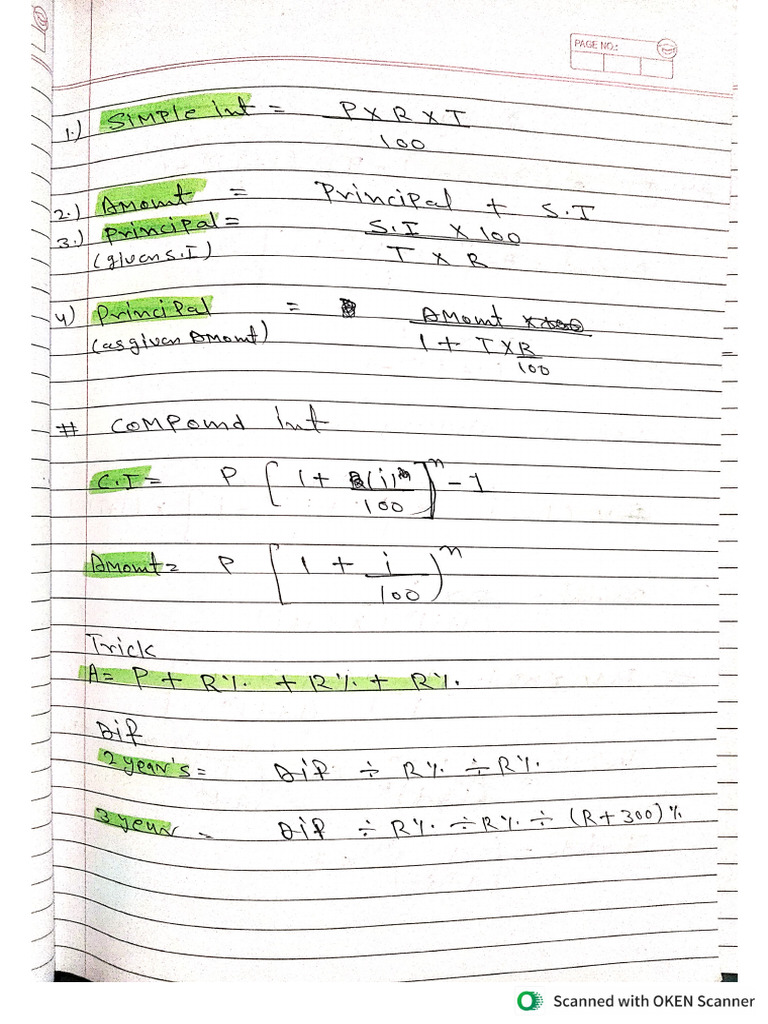 PAGE NO.:
1.) SIMPLE Int = P X R X T
100
2.) Amomt = Principal + S.I
3.) Principal = S.I X 100
(given S.I) T X R
4) Principal = Amomt
(as given Amomt) 1 + T X R
100
# Compomd int
C.I = P [ 1 + (i)
100 ]n - 1
Amomt = P [ 1 + i
100 )n
Trick
A = P + R% + R% + R%.
Dif
2 year's = Dif ÷ R% ÷ R%.
3 year = Dif ÷ R% ÷ R% ÷ (R+300)%
Scanned with OKEN Scanner